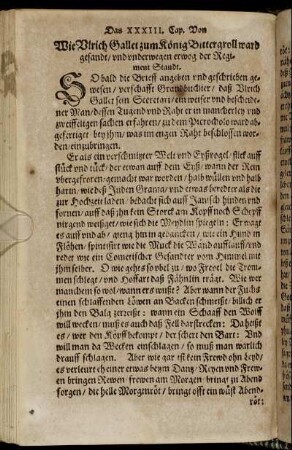 Das XXXIII. Cap. Von
Wie Vlrich Gallet zum König Bittergroll ward
gesandt/ vnd vnderwegen erwog der Regi-
ment Standt.
SO bald die Brieff angeben vnd geschrieben ge-
wesen/ verschafft Grandbuchier/ daß Vlrich
Gallet sein Secretari/ ein weiser vnd bescheide-
ner Man/ dessen Tugend vnd Raht er in mancherley vnd
zweiffeligen sachen erfahren/ zu dem Picrocholo ward ab-
gefertiget bey jhm/ was im engen Raht beschlossen wor-
den/ einzubringen.
Er als ein verschmitzter Welt vnd Erßvogel/ flick auff
flück vnd rück/ der etwan auff dem Eyß/ wann der Rein
vbergefroren/ gemacht war worden/ halb hüllen vnd halb
harin/ wie deß Juden Granta/ vnd etwas beredter als die
zur Hochzeit laden/ bedacht sich auff Jawsch hinden vnd
fornen/ auff daß jhn kein Storck am Kopff noch Schepff
nirgend weißget/ wie sich die Meydlin spieglen: Erwags
es auff vnd ab/ weng jhm in gedancken/ wie ein Hund in
Flöhen/ spinisirt wie die Muck die Wand auff lauff/ vnd
redet wie ein Cometischer Gesandter vom Himmel mit
jhm selber. O wie gehts so vbel zu/ wo Frevel die Trom-
men schlegt/ vnd Hoffart daß Fähnlin trägt. Wie wer
mancher so wol/ wann er s wüste? Aber wann der Fuchs
einen schlaffenden Löwen an Backen schmeißt/ billich er
jhm den Balg zerreist: wann ein Schaaff den Wolff
will wecken/ muß es auch daß Fell darstrecken: Da heißt
es/ wer den Kopff bekompt/ der schert den Bart: Vnd
will man da Wecken einschlagen/ so muß man warlich
drauff schlagen. Aber wie gar ist kein Frewd ohn Leyd/
es verleure eh einer etwas beym Dantz/ Reyen vnd Frew-
en bringen Rewen/ frewen am Morgen/ bringt zu Abend
sorgen/ die helle Morgenröt/ bringt offt ein wüst Abend-
röt: